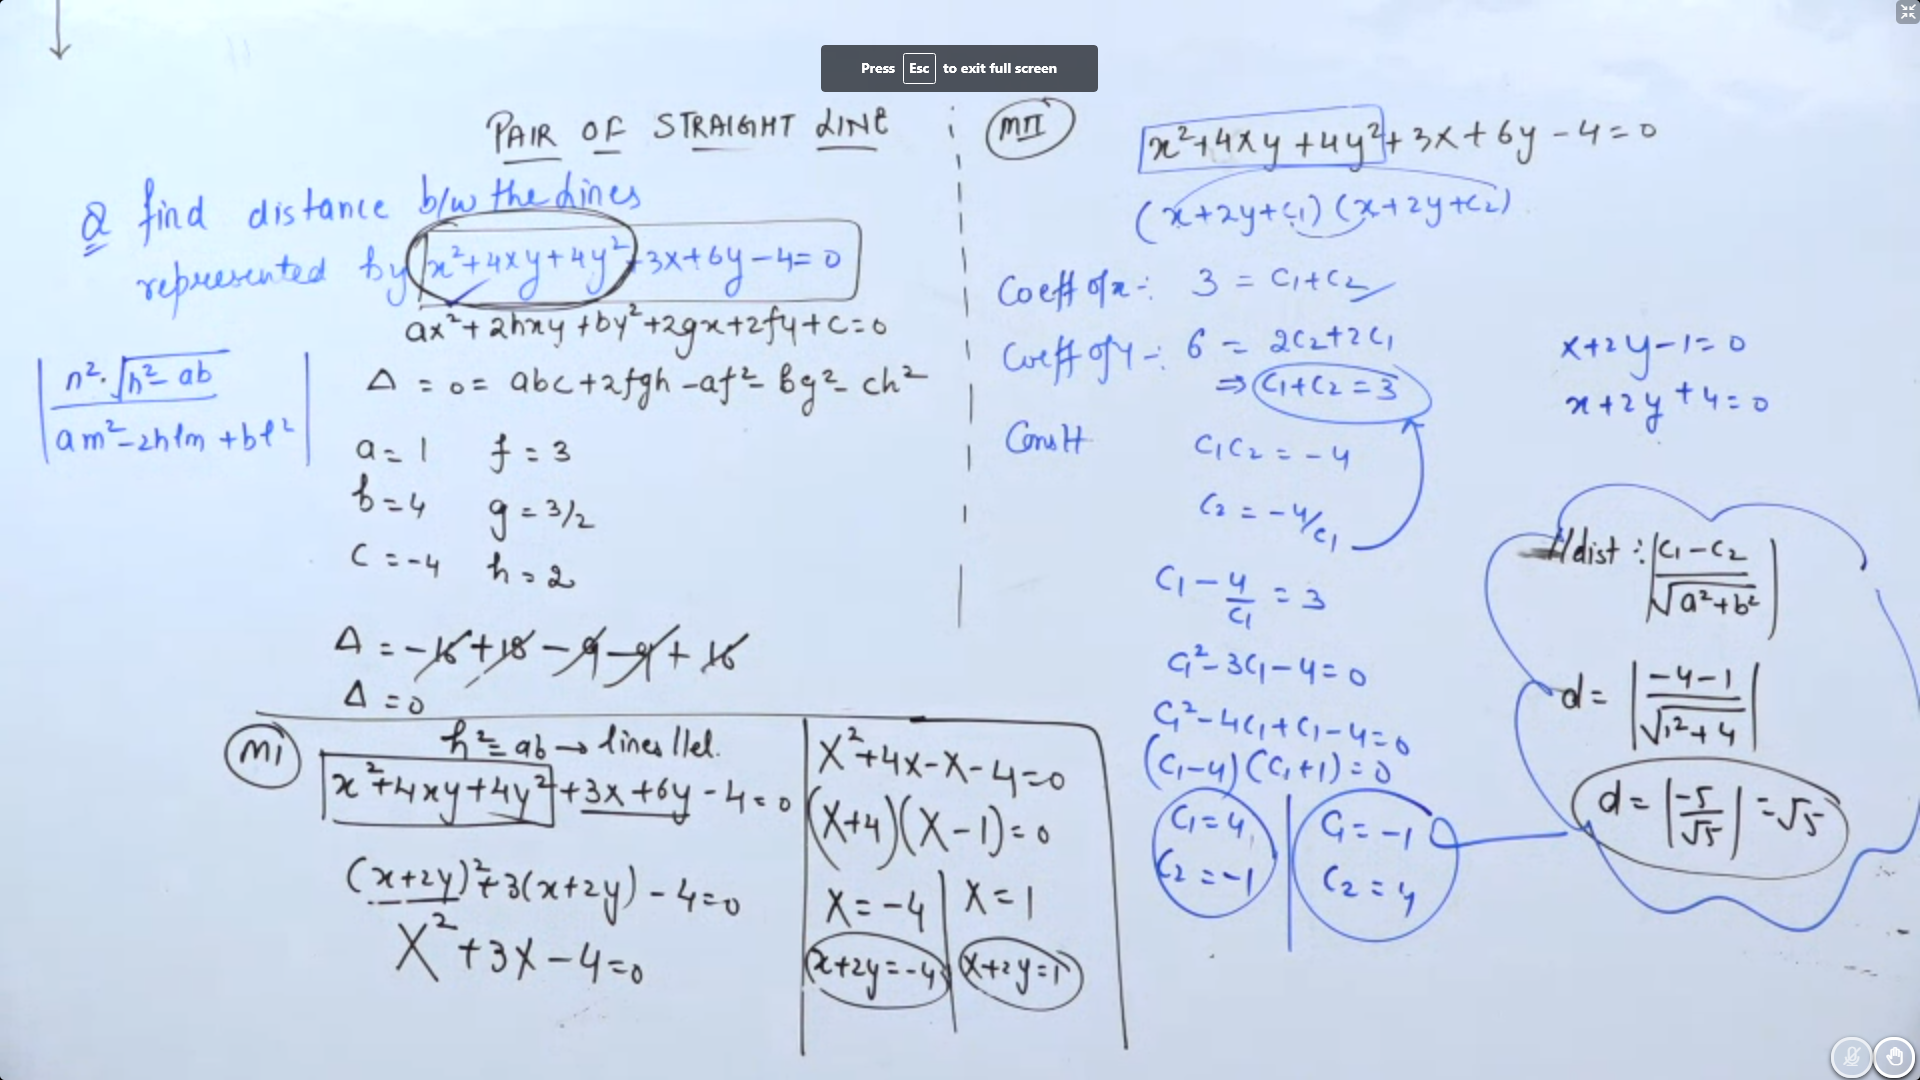 Press Esc to exit full screen
PAIR OF STRAIGHT LINE
Q find distance b/w the Lines
represented by x²+4xy+4y²+3x+6y-4=0
ax²+2hxy+by²+2gx+2fy+c=0
Δ = 0 = abc+2fgh-af²-bg²-ch²
n²·√h²-ab
am²-2hlm+bl²
a=1 f=3
b=4 g=3/2
c=-4 h=2
Δ = -16+18-9-9+16
Δ=0
M1
h²=ab → lines llel.
x²+4xy+4y²+3x+6y-4=0
(x+2y)²+3(x+2y)-4=0
X²+3X-4=0
X²+4X-X-4=0
(X+4)(X-1)=0
X=-4 X=1
x+2y=-4 x+2y=1
MII
x²+4xy+4y²+3x+6y-4=0
(x+2y+c1)(x+2y+c2)
Coeff of x :- 3 = C1+C2
Coeff of y :- 6 = 2C2+2C1
⇒ C1+C2=3
Constt
C1C2=-4
C2=-4/C1
C1-4/C1=3
C1²-3C1-4=0
C1²-4C1+C1-4=0
(C1-4)(C1+1)=0
C1=4 C1=-1
C2=-1 C2=4
x+2y-1=0
x+2y+4=0
//dist : |C1-C2/√a²+b²|
d = |-4-1/√1²+4|
d = |-5/√5| = √5